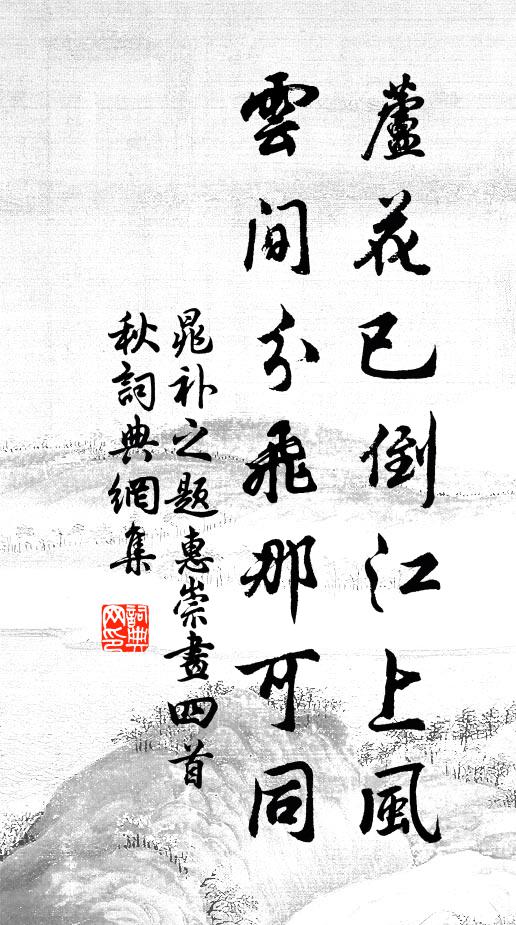 蘆花已倒江上風
雲間分飛那可同
晁补之題惠崇畫四首
秋詞典網集
詞典网印